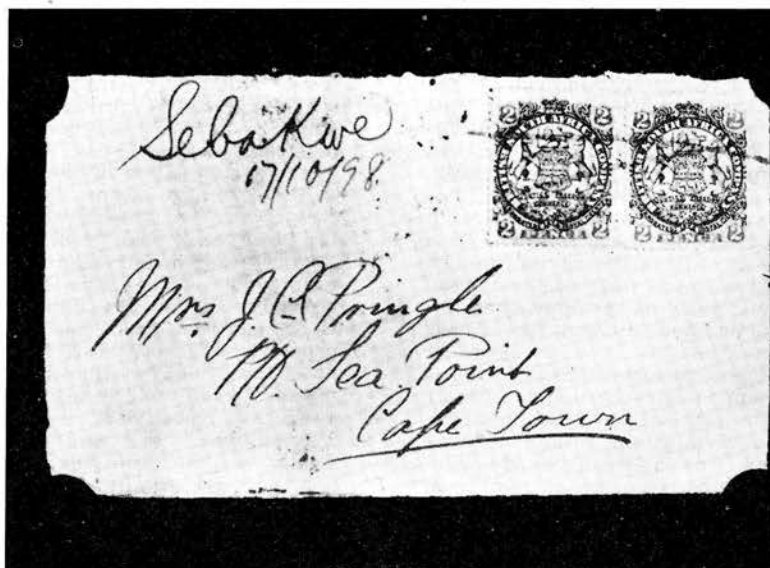 Sebakwe
17/10/98.
2 2 2 2
2 2 2 2
Mrs. J. C. Pringle
PO. Sea Point
Cape Town